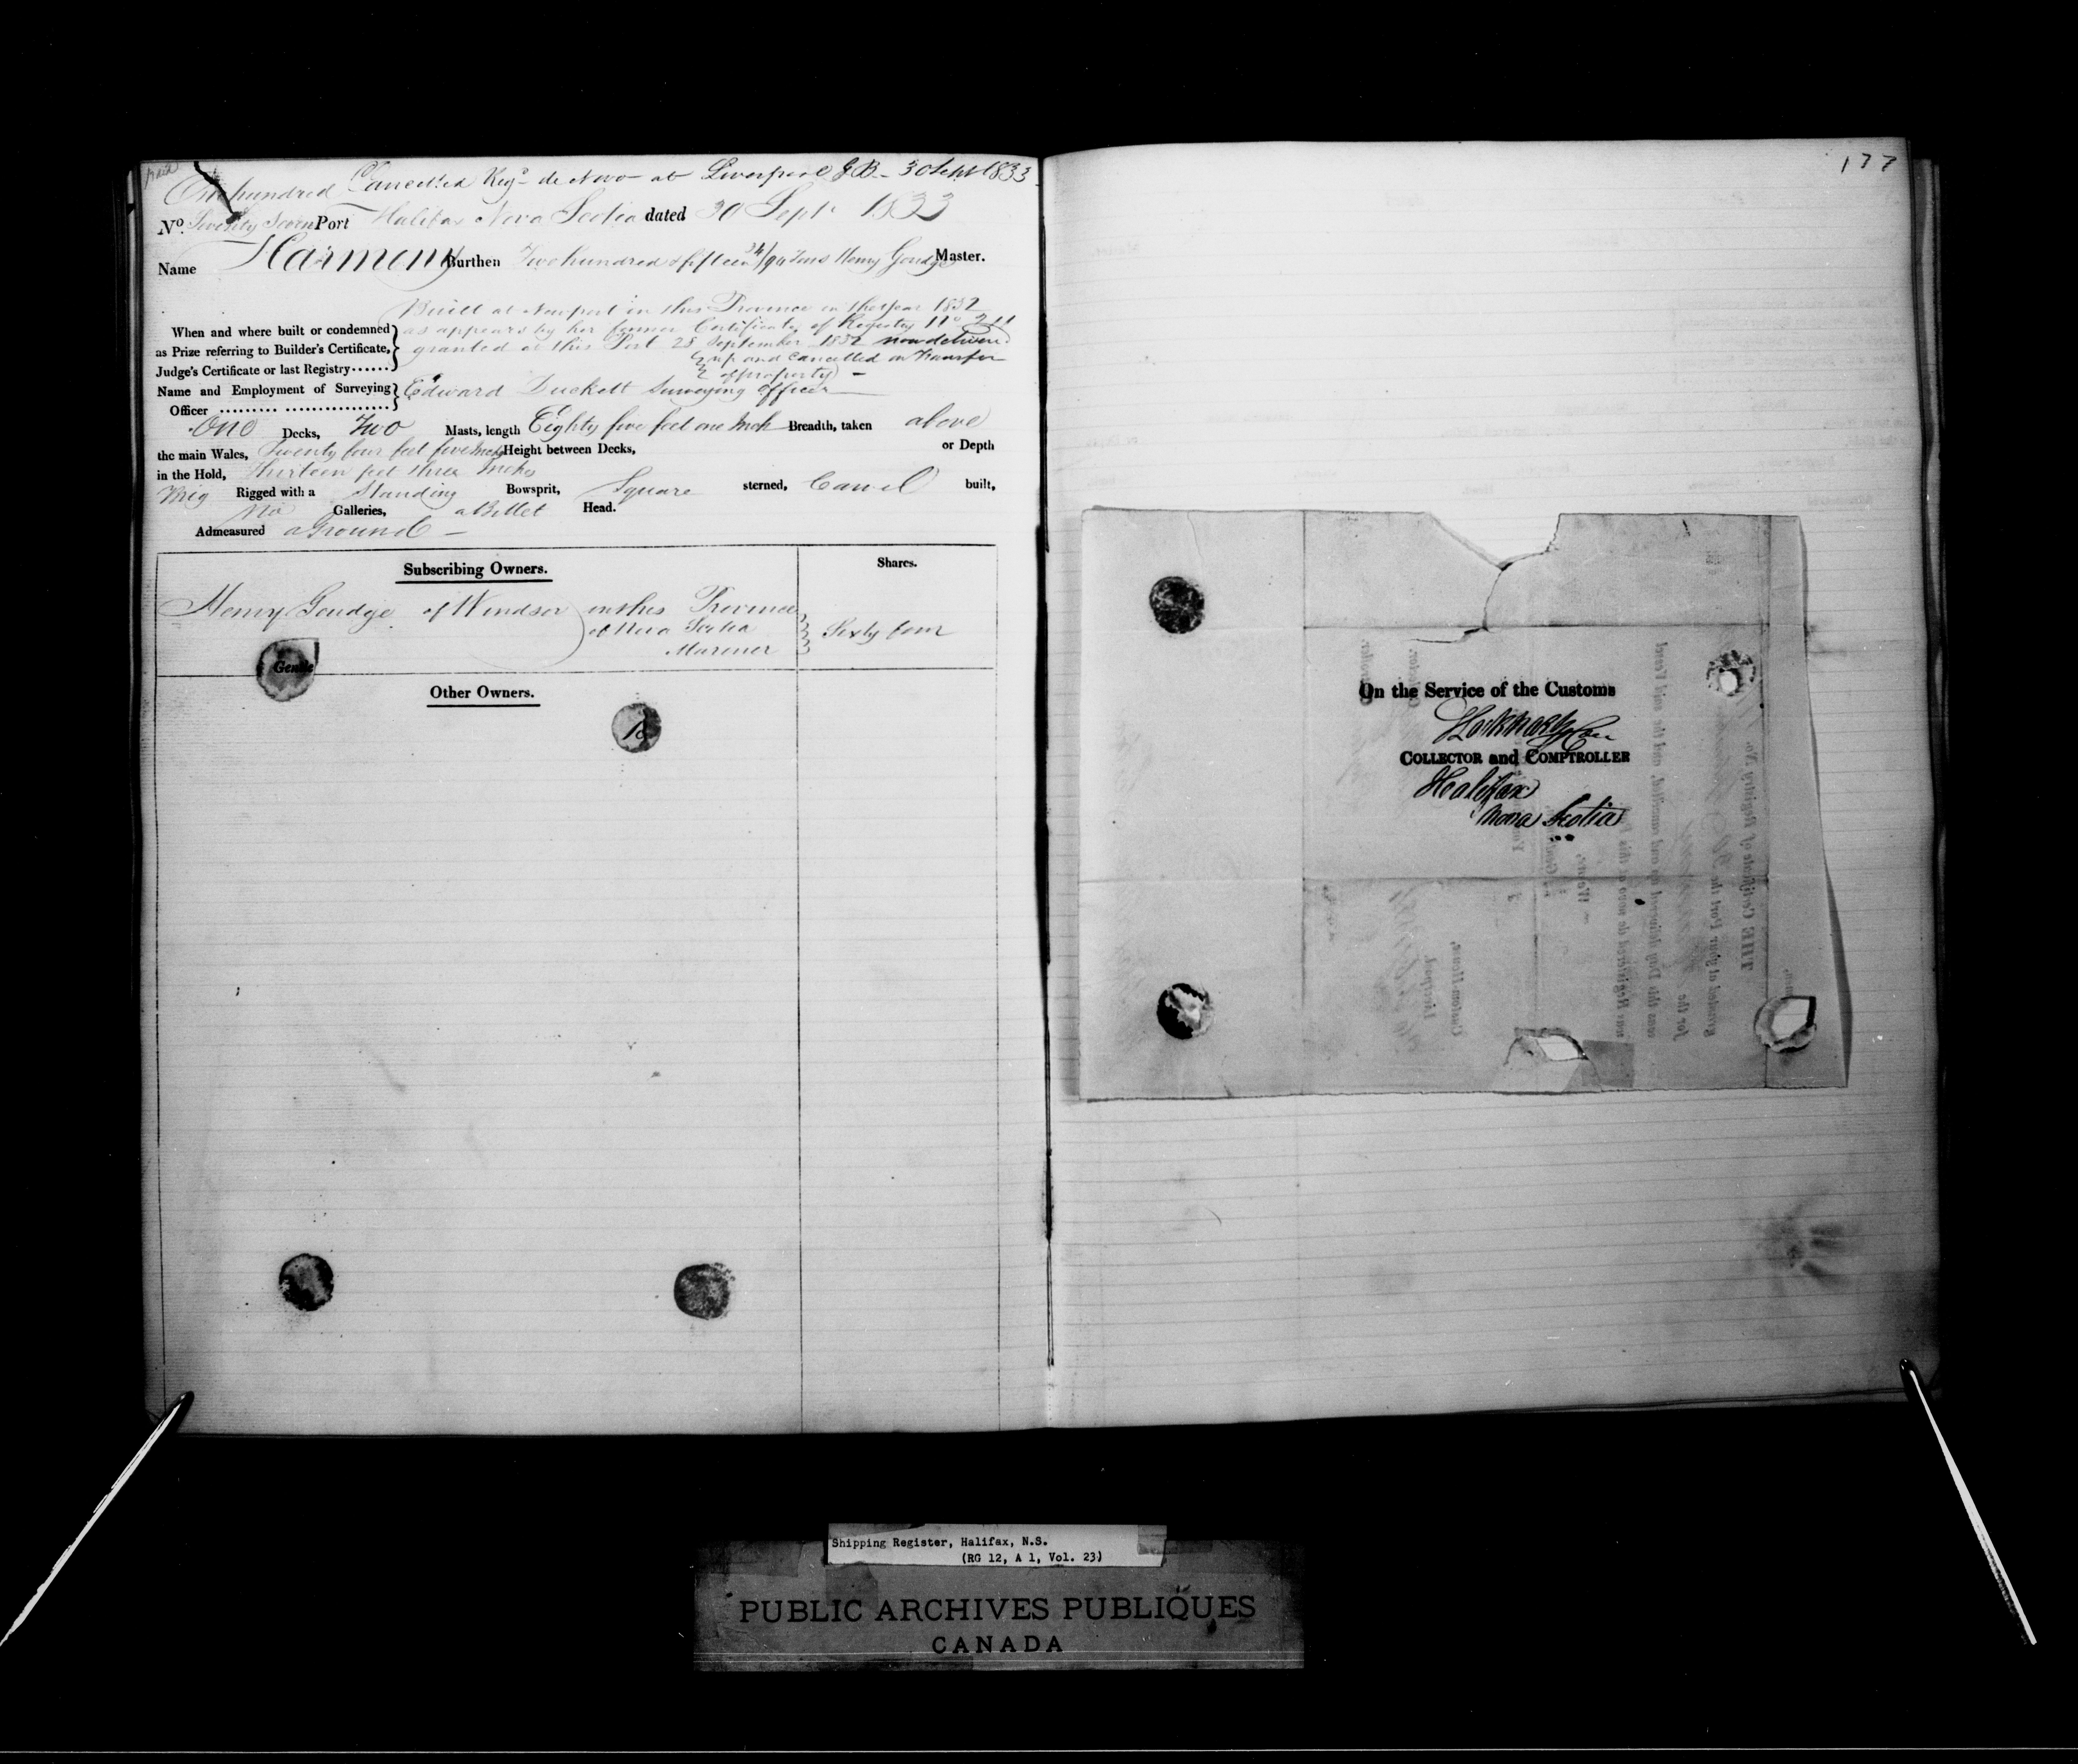 paid
Cancelled Reg.d de Novo at Liverpool G.B. 30 Sept 1833
One hundred
No. Seventy Seven Port Halifax Nova Scotia dated 30 Sept. 1833
Name Harmony Burthen Two hundred & fifteen 34/94 Tons Henry Goudge Master.
Built at Newport in this Province in the Year 1832
When and where built or condemned as appears by her former Certificate of Registry No.
as Prize referring to Builder's Certificate, granted at this Port 28 September 1832 now delivered
Judge's Certificate or last Registry...... up and Cancelled on Transfer
of property) —
Name and Employment of Surveying Edward Duckett Surveying Officer
Officer ......... ................
One Decks, Two Masts, length Eighty five feet one Inch Breadth, taken above
the main Wales, Twenty four feet five Inches Height between Decks, or Depth
in the Hold, Thirteen feet three Inches
Brig Rigged with a Standing Bowsprit, Square sterned, Carvel built,
No Galleries, a Billet Head.
Admeasured aGround —
Subscribing Owners. Shares.
Henry Goudge of Windsor in this Province
of Nova Scotia Sixty four
Mariner
Other Owners.
177
On the Service of the Customs
COLLECTOR and COMPTROLLER
Halifax
Nova Scotia
THE Certificate of Registry No.
granted at your Port the
for the
was this Day delivered up and cancelled, and the said Vessel
now Registered de novo at this
Custom-House,
Liverpool,
Shipping Register, Halifax, N.S.
(RG 12, A 1, Vol. 23)
PUBLIC ARCHIVES PUBLIQUES
CANADA